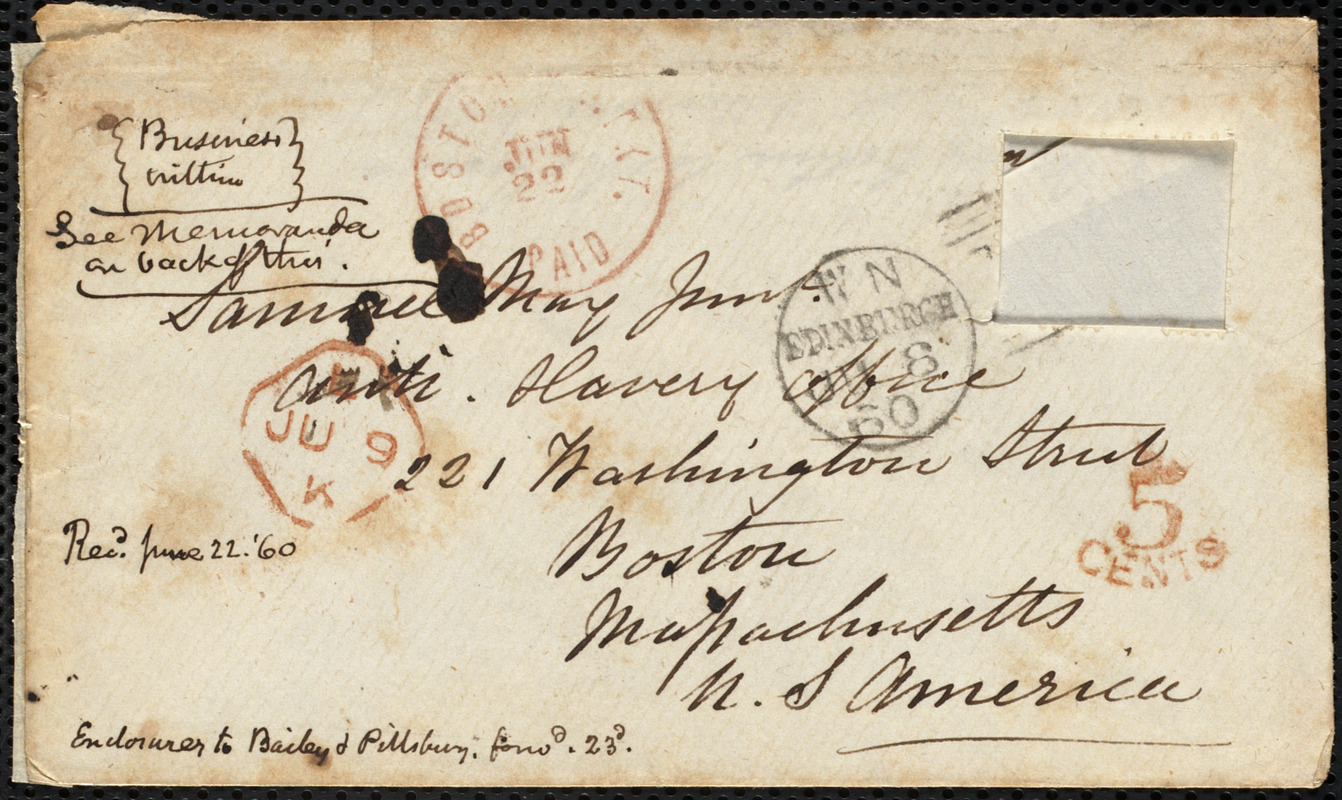 {Business
within}
See Memoranda
on back of this.
BOSTON PKT.
JUN
22
PAID
Samuel May Junr.
Anti. Slavery Office
221 Washington Street
Boston
Massachusetts
U. S America
WN
EDINBURGH
JU 8
60
JU 9
K
5
CENTS
Recd. June 22. '60
Enclosures to Bailey & Pillsbury. forwd. 23d.